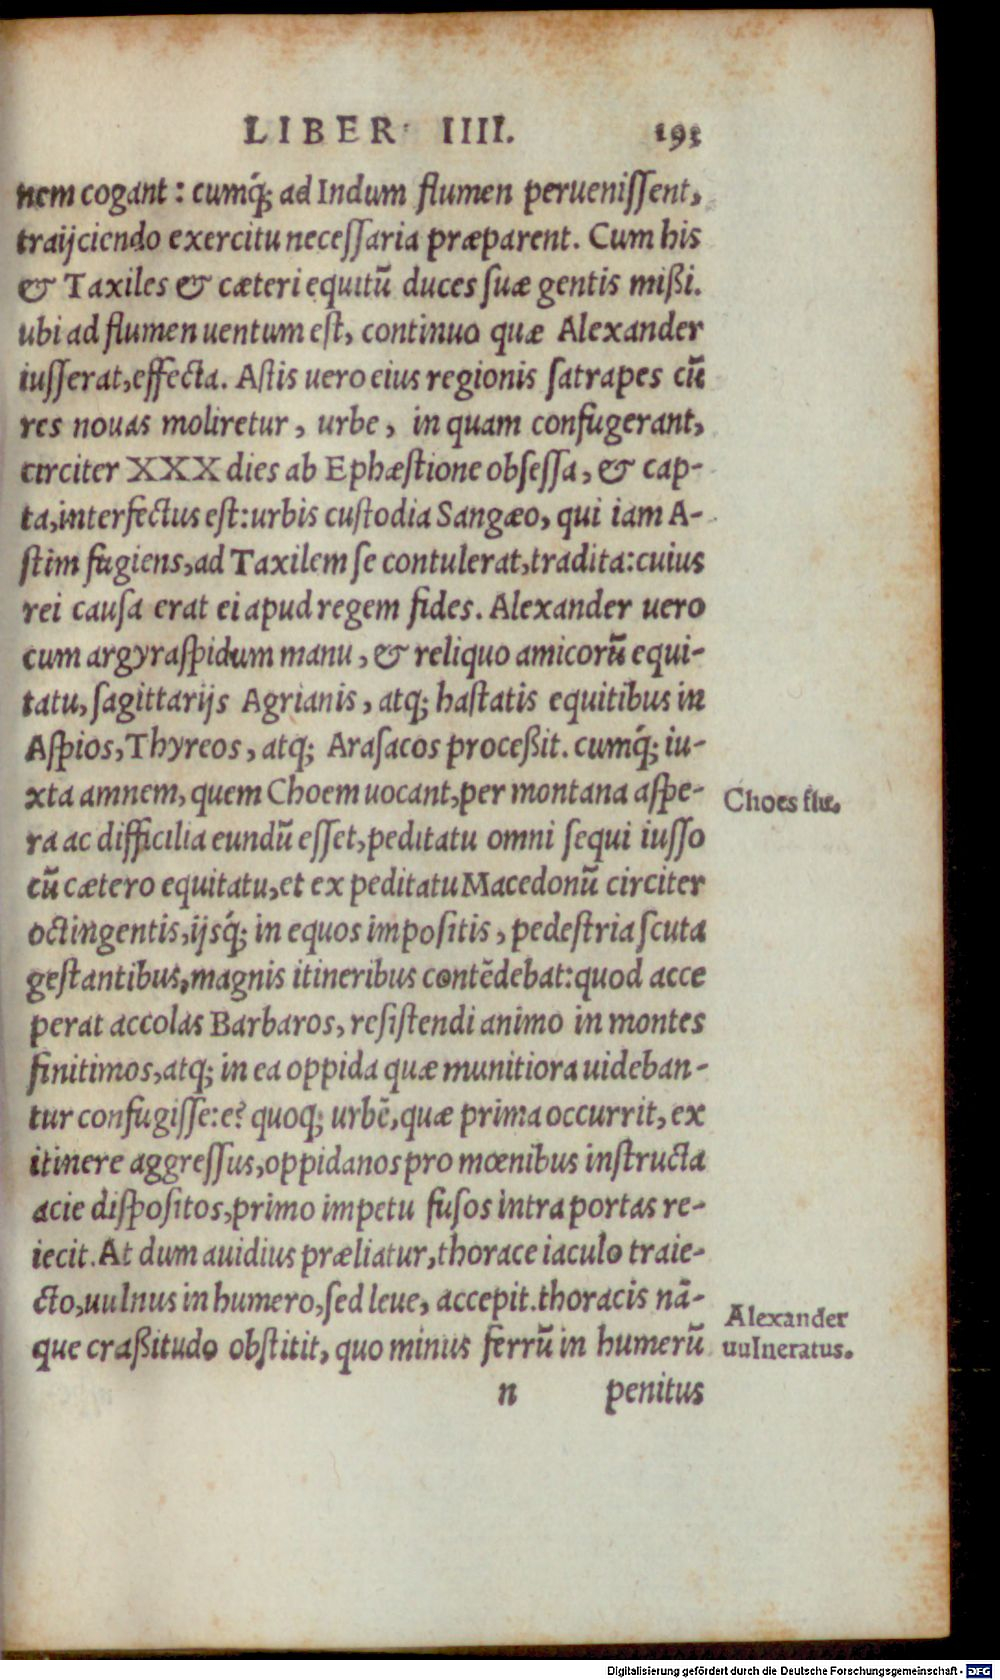 LIBER IIII. 193
nem cogant: cumq́; ad Indum flumen peruenissent,
traijciendo exercitu necessaria præparent. Cum his
& Taxiles & cæteri equitũ duces suæ gentis mißi.
ubi ad flumen uentum est, continuo quæ Alexander
iusserat, effecta. Astis uero eius regionis satrapes cũ
res nouas moliretur, urbe, in quam confugerant,
circiter XXX dies ab Ephæstione obsessa, & cap-
ta, interfectus est: urbis custodia Sangæo, qui iam A-
stim fugiens, ad Taxilem se contulerat, tradita: cuius
rei causa erat ei apud regem fides. Alexander uero
cum argyraspidum manu, & reliquo amicorũ equi-
tatu, sagittarijs Agrianis, atq; hastatis equitibus in
Aspios, Thyreos, atq; Arasacos proceßit. cumq́; iu-
xta amnem, quem Choem uocant, per montana aspe-
ra ac difficilia eundũ esset, peditatu omni sequi iusso
cũ cætero equitatu, et ex peditatu Macedonũ circiter
octingentis, ijsq́; in equos impositis, pedestria scuta
gestantibus, magnis itineribus contẽdebat: quod acce
perat accolas Barbaros, resistendi animo in montes
finitimos, atq; in ea oppida quæ munitiora uideban-
tur confugisse: e? quoq; urbẽ, quæ prima occurrit, ex
itinere aggressus, oppidanos pro mœnibus instructa
acie dispositos, primo impetu fusos intra portas re-
iecit. At dum auidius præliatur, thorace iaculo traie-
cto, uulnus in humero, sed leue, accepit. thoracis nã-
que craßitudo obstitit, quo minus ferrũ in humerũ
n penitus
Choes flu.
Alexander
uulneratus.
Digitalisierung gefördert durch die Deutsche Forschungsgemeinschaft - DFG